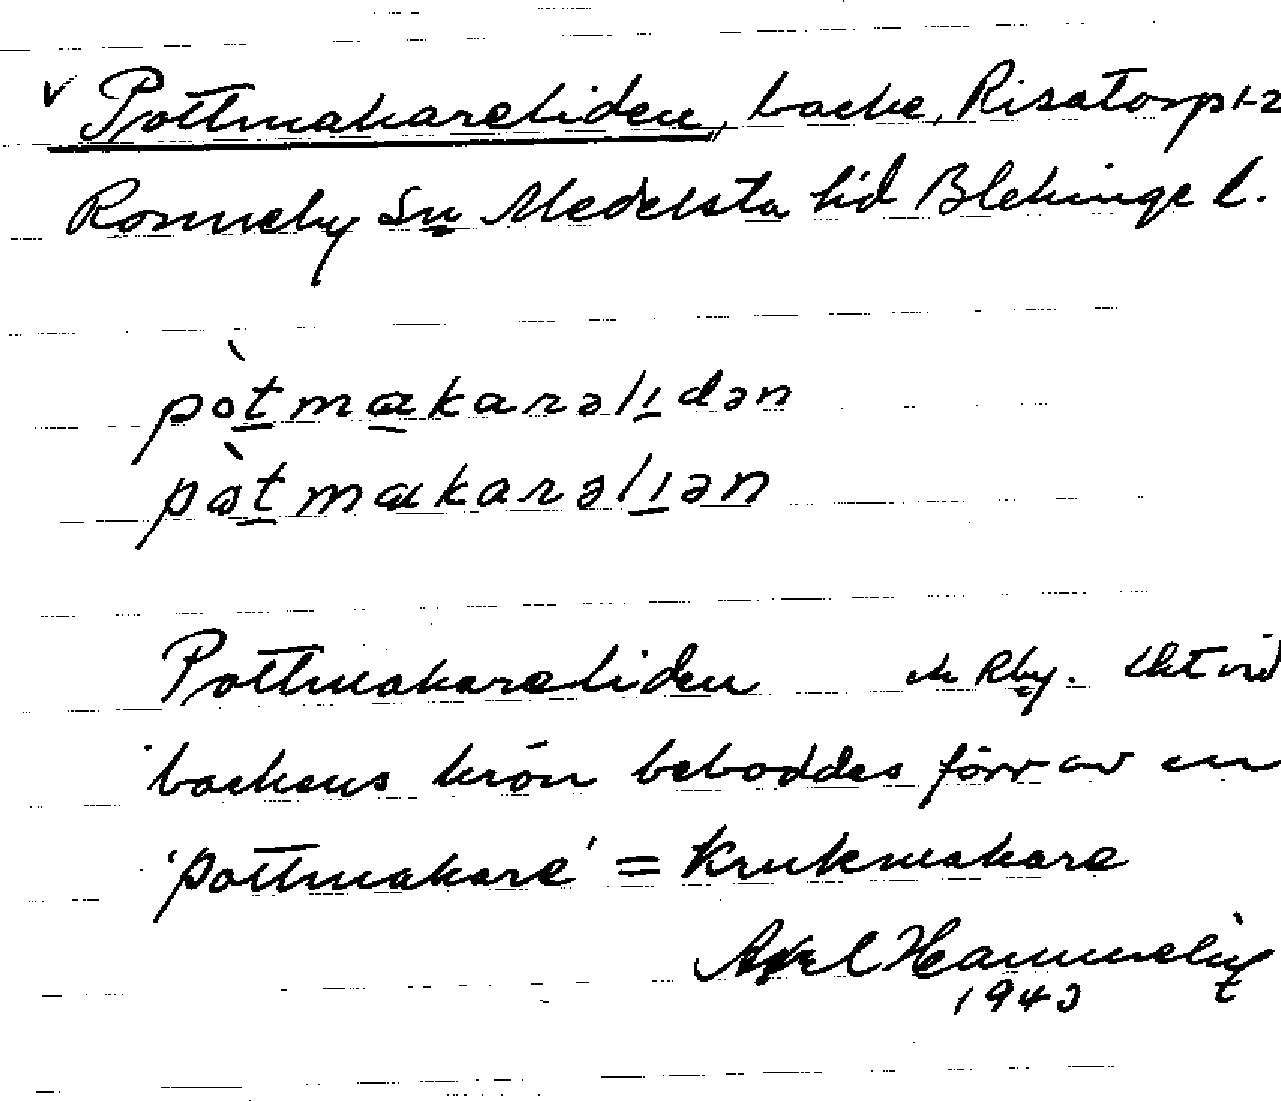 v Pottmakareliden, backe, Risatorp 1-2
Ronneby Sn Medelsta hd Blekinge l.
pòtmakarəlıdən
pàtmakarəlıən
Pottmakareliden Rby. Ut vid
backens krön beboddes förr av en
'pottmakare' = Krukmakare
Axel
1943